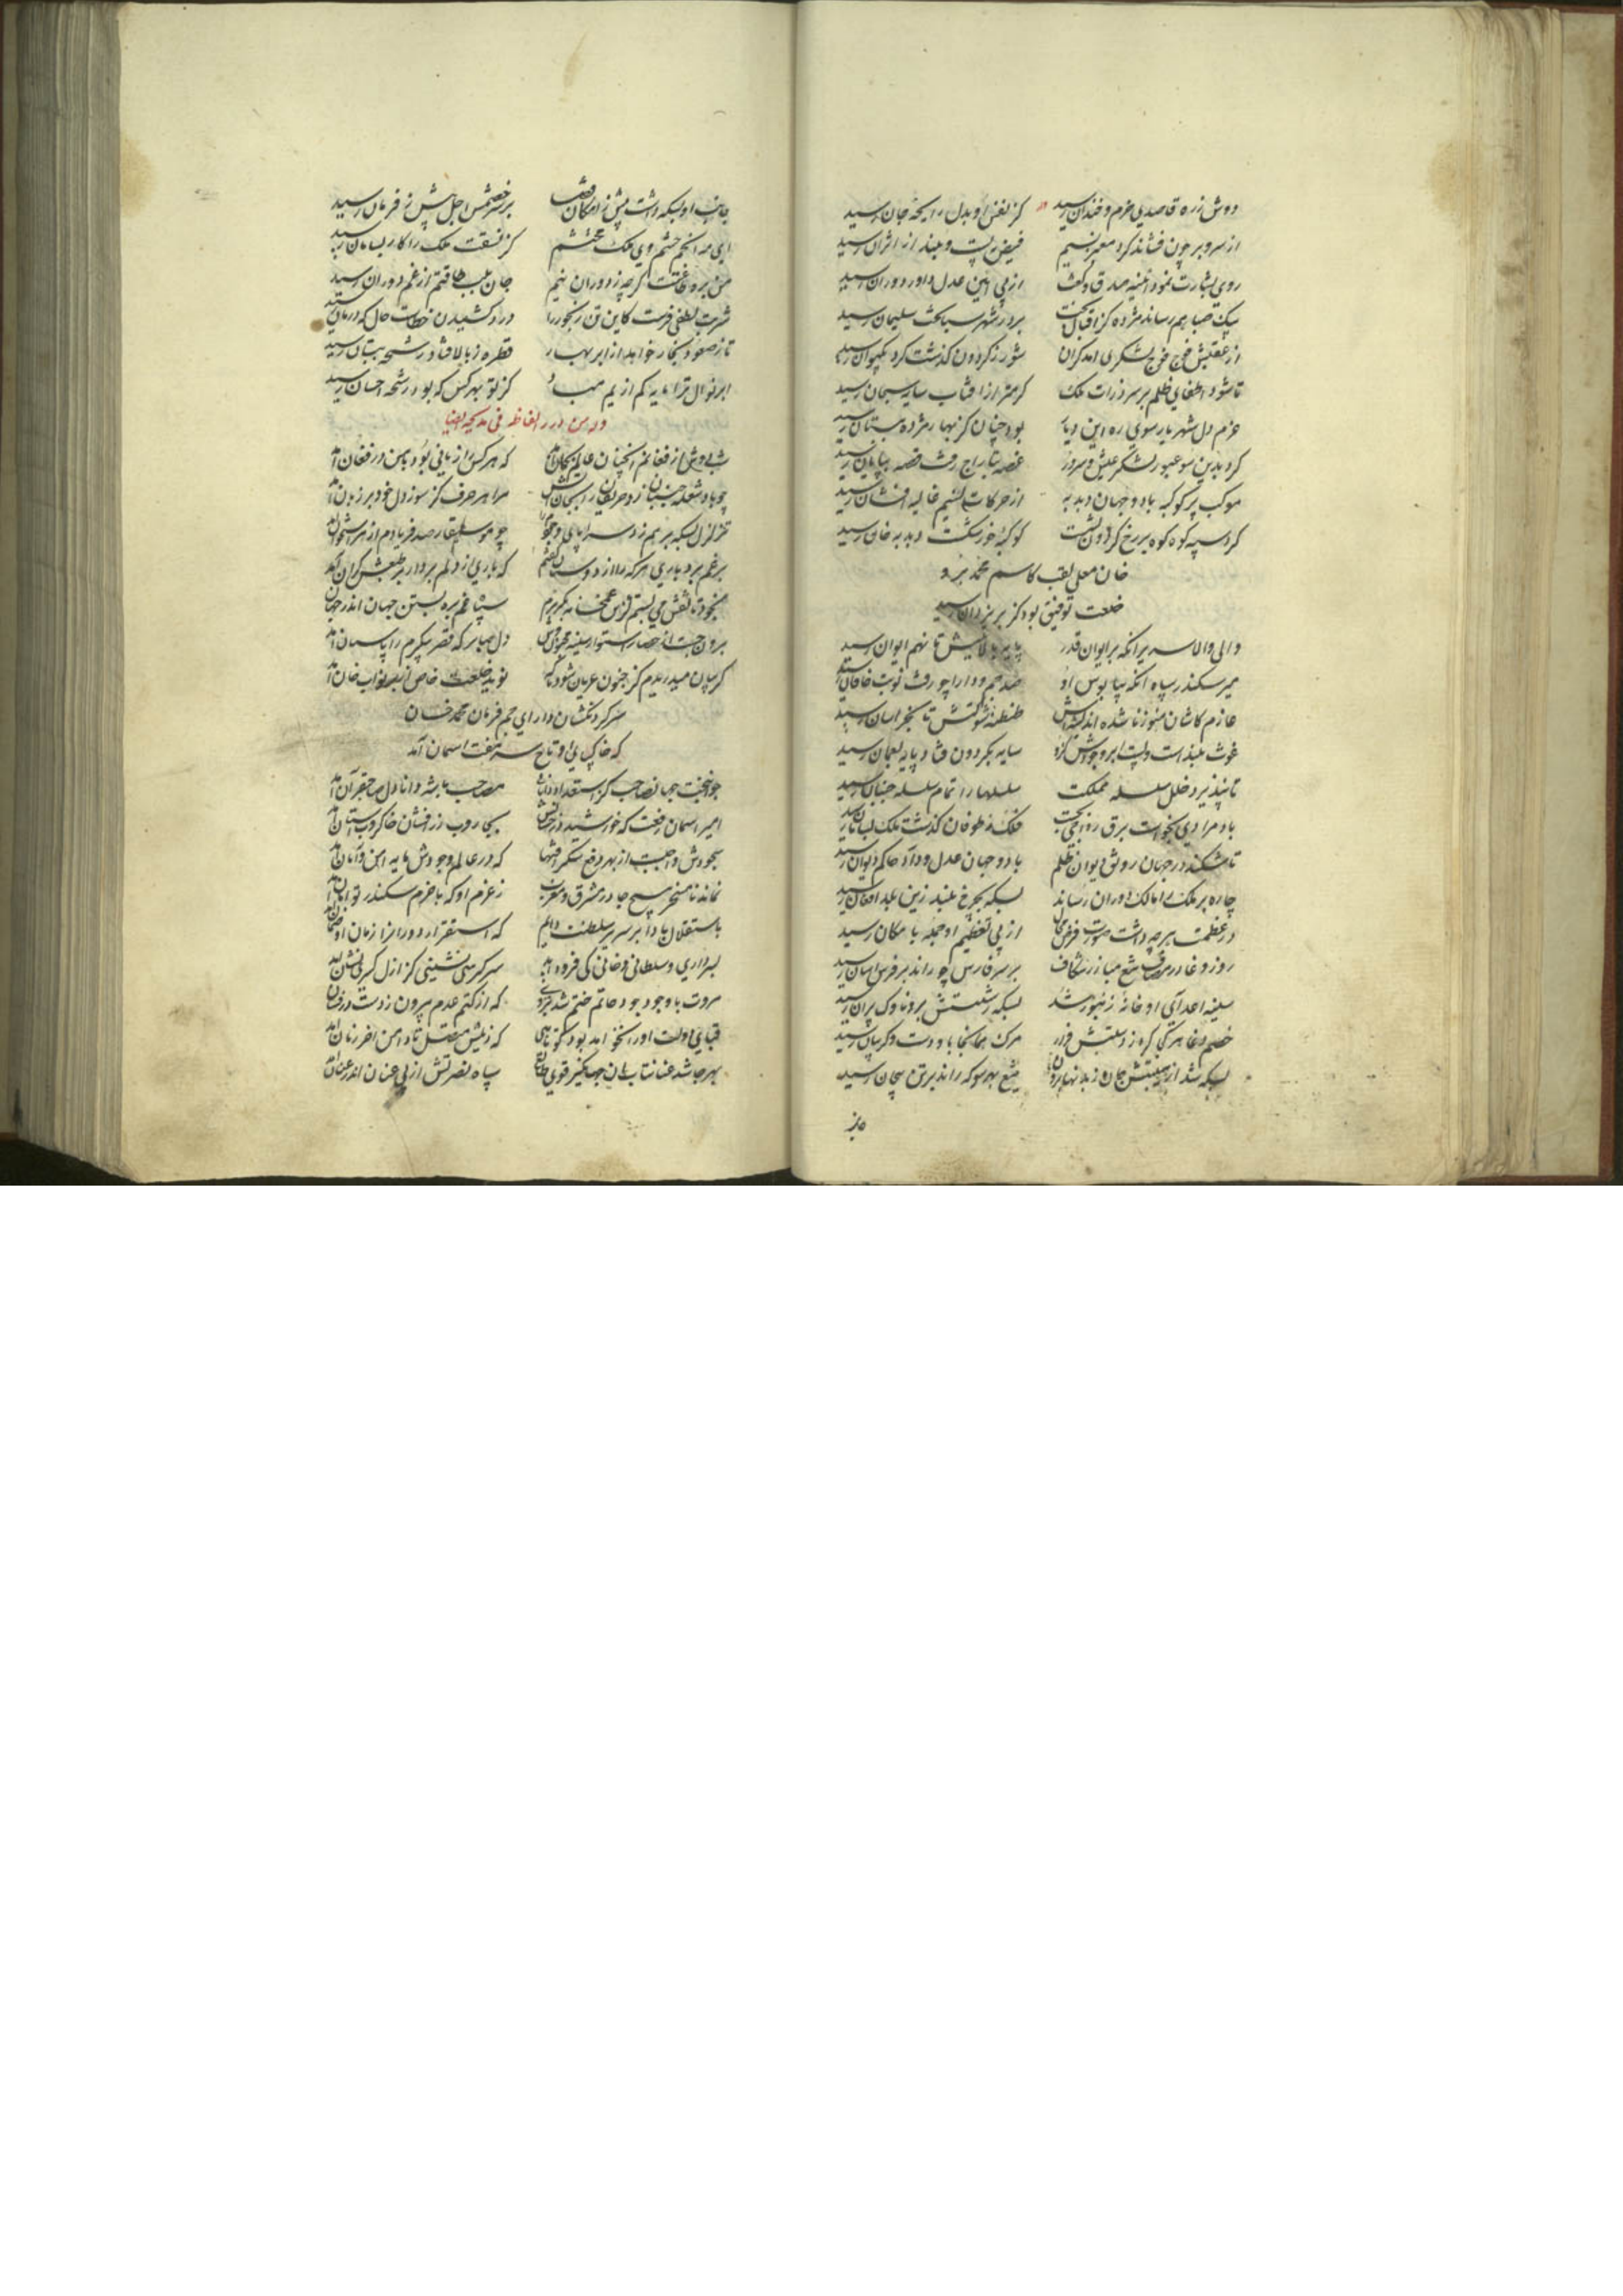 دوش ز ره قاصدی خرم و خندان رسید کز نفس او بدل رایحهٔ جان رسید
از سر و بر چون فشاند کرد معنبر نسیم فیض بپست و بلند از اثر آن رسید
روی بشارت نمود آینه صدق و گفت از پی آیین عدل داور دوران رسید
پیک صبا هم رساند مژده کز اقبال و بخت بر در شهر سبا تخت سلیمان رسید
از عقبش فوج فوج لشکری آمد کران شور ز کردون گذشت کرد بکیوان رسید
تا شود اطفای ظلم بر سر ذرات ملک کرمتر از آفتاب سایه سبحان رسید
عزم دل شهریار سوی ره این دیار بود چنان کز بهار مژده ببستان رسید
کرد بدین سو عبور لشکر عیش و سرور غصه بتاراج رفت قصه بپایان رسید
موکب پر کوکبه باد و جهان دبدبه از حرکات نسیم غالیه افشان رسید
کرد سپه کوه کوه بر رخ کردون نشست کوکبهٔ خور شکست دبدبه خان رسید
خان معلی لقب کاسم محمد برو
خلعت توفیق بود کز بر یزدان رسید
والی والا سریر آنکه بر ایوان قدر پایه بالایش تا نهم ایوان رسید
میر سکندر سپاه آنکه بپابوس او صد جم و دارا چو رفت نوبت خاقان رسید
عازم کاشان هنوز ناشده اندیشه‌اش طنطنهٔ شوکتش تا بخراسان رسید
غوث بلند است و پست ابر وجودش کزو سایه بکردون فتاد پایه بعمان رسید
تا نپذیرد خلل سلسله مملکت سلسلها را تمام سلسله جنبان رسید
باد مرادی بخواست برق فلک ز طوفان گذشت ملک بسامان رسید
تا شکند در جهان رونق دیوان ظلم با دو جهان عدل و داد حاکم دیوان رسید
چاره بر ملک را مالک دوران رساند بسکه بچرخ بلند زین بلد افغان رسید
در عظمت هر چه داشت صورت فرض محال از پی تعظیم او جمله بامکان رسید
روز وغا در مصاف تیغ مبارز شکاف بر سر فارس چو راند بر فرس آسان رسید
سینهٔ اعدای او خانهٔ زنبور شد بسکه ز شستش برو ناوک پران رسید
خصم دغا هر کجا کرد ز دستش فرار مرک همانجا با و دست و کریبان رسید
بسکه شد از هیبتش جان ز بدنها برون تیغ بهر سو که راند بر تن بیجان رسید
بز
جانب او بسکه داشت پیش ز امکان قضا بر سر خصمش اجل پیش ز فرمان رسید
ای مه انجم حشم وی ملک محتشم کز نسقت ملک را کار بسامان رسید
من بره طاعتت کرچه ز دوران نیم جان بلب طاقتم از غم دوران رسید
شربت لطفی فرست کاین تن رنجور را درد کشیدن خطاست حال که درمان رسید
تا ز صعود بخار خواهد از ابر بهار قطره ز بالا فتاد رشحه ببستان رسید
ابر نوال ترا مایه کم از یم مباد کز تو بهر کس که بود رشحه احسان رسید
وله من درر الفاظه فی مدیحه ایضا
شبی دوش از فغانم آنچنان عالم بجان آمد که هر کس را زبانی بود با من در فغان آمد
چو باد شعله جنبان زد حریفان را بجان آتش مرا هر حرف کز سوز دل خود بر زبان آمد
تزلزل بسکه بر هم زد سراپای وجودم را چو موسیقار صد فریادم از هر استخوان آمد
بر غم بردباری هر که را از دوستان گفتم که باری از دلم بردار بر طبعش کران آمد
بخود تا نقش می بستم کزین غمخانه بگریزم سپاه غم بره بستن جهان اندر جهان آمد
برون جست از حصار استوار سینهٔ مجروح دل صابر که قصر پیکرم را پاسبان آمد
گریبان میدریدم کز جنون عریان شود ناگه نوید خلعت خاص از بر نواب خان آمد
سر گردنکشان دارای جم فرمان محمد خان
که خاک پای او تاج سر هفت آسمان آمد
جوانبخت جهان صاحب کز استعداد ذاتی مصاحب با شه دانا دل صاحبقران آمد
امیر آسمان رفعت که خورشید درخشانش بجاروب زرافشان خاکروب آستان آمد
سجودش واجبست از بهر دفع لشکر افتها که در عالم وجودش مایهٔ امن و امان آمد
نماند نامسخر هیچ جا در مشرق و مغرب ز عزم او که با عزم سکندر توامان آمد
باستقلال بادا بر سریر سلطنت دایم که استقرار دوران را زمان او ضمان آمد
بسرداری و سلطانی و خانی کی فرود آید سر کرسی نشینی کز ازل کرسی نشان آمد
مروت با وجود جود حاتم ختم شد بروی که از کتم عدم بیرون ز دست درفشان آمد
قبای دولت او را نخواهد بود کوتاهی که ذیلش متصل تا دامن آخر زمان آمد
بهر جا شد عنانتاب آن جهانگیر قوی طالع سپاه نصرتش از پی عنان اندر عنان آمد